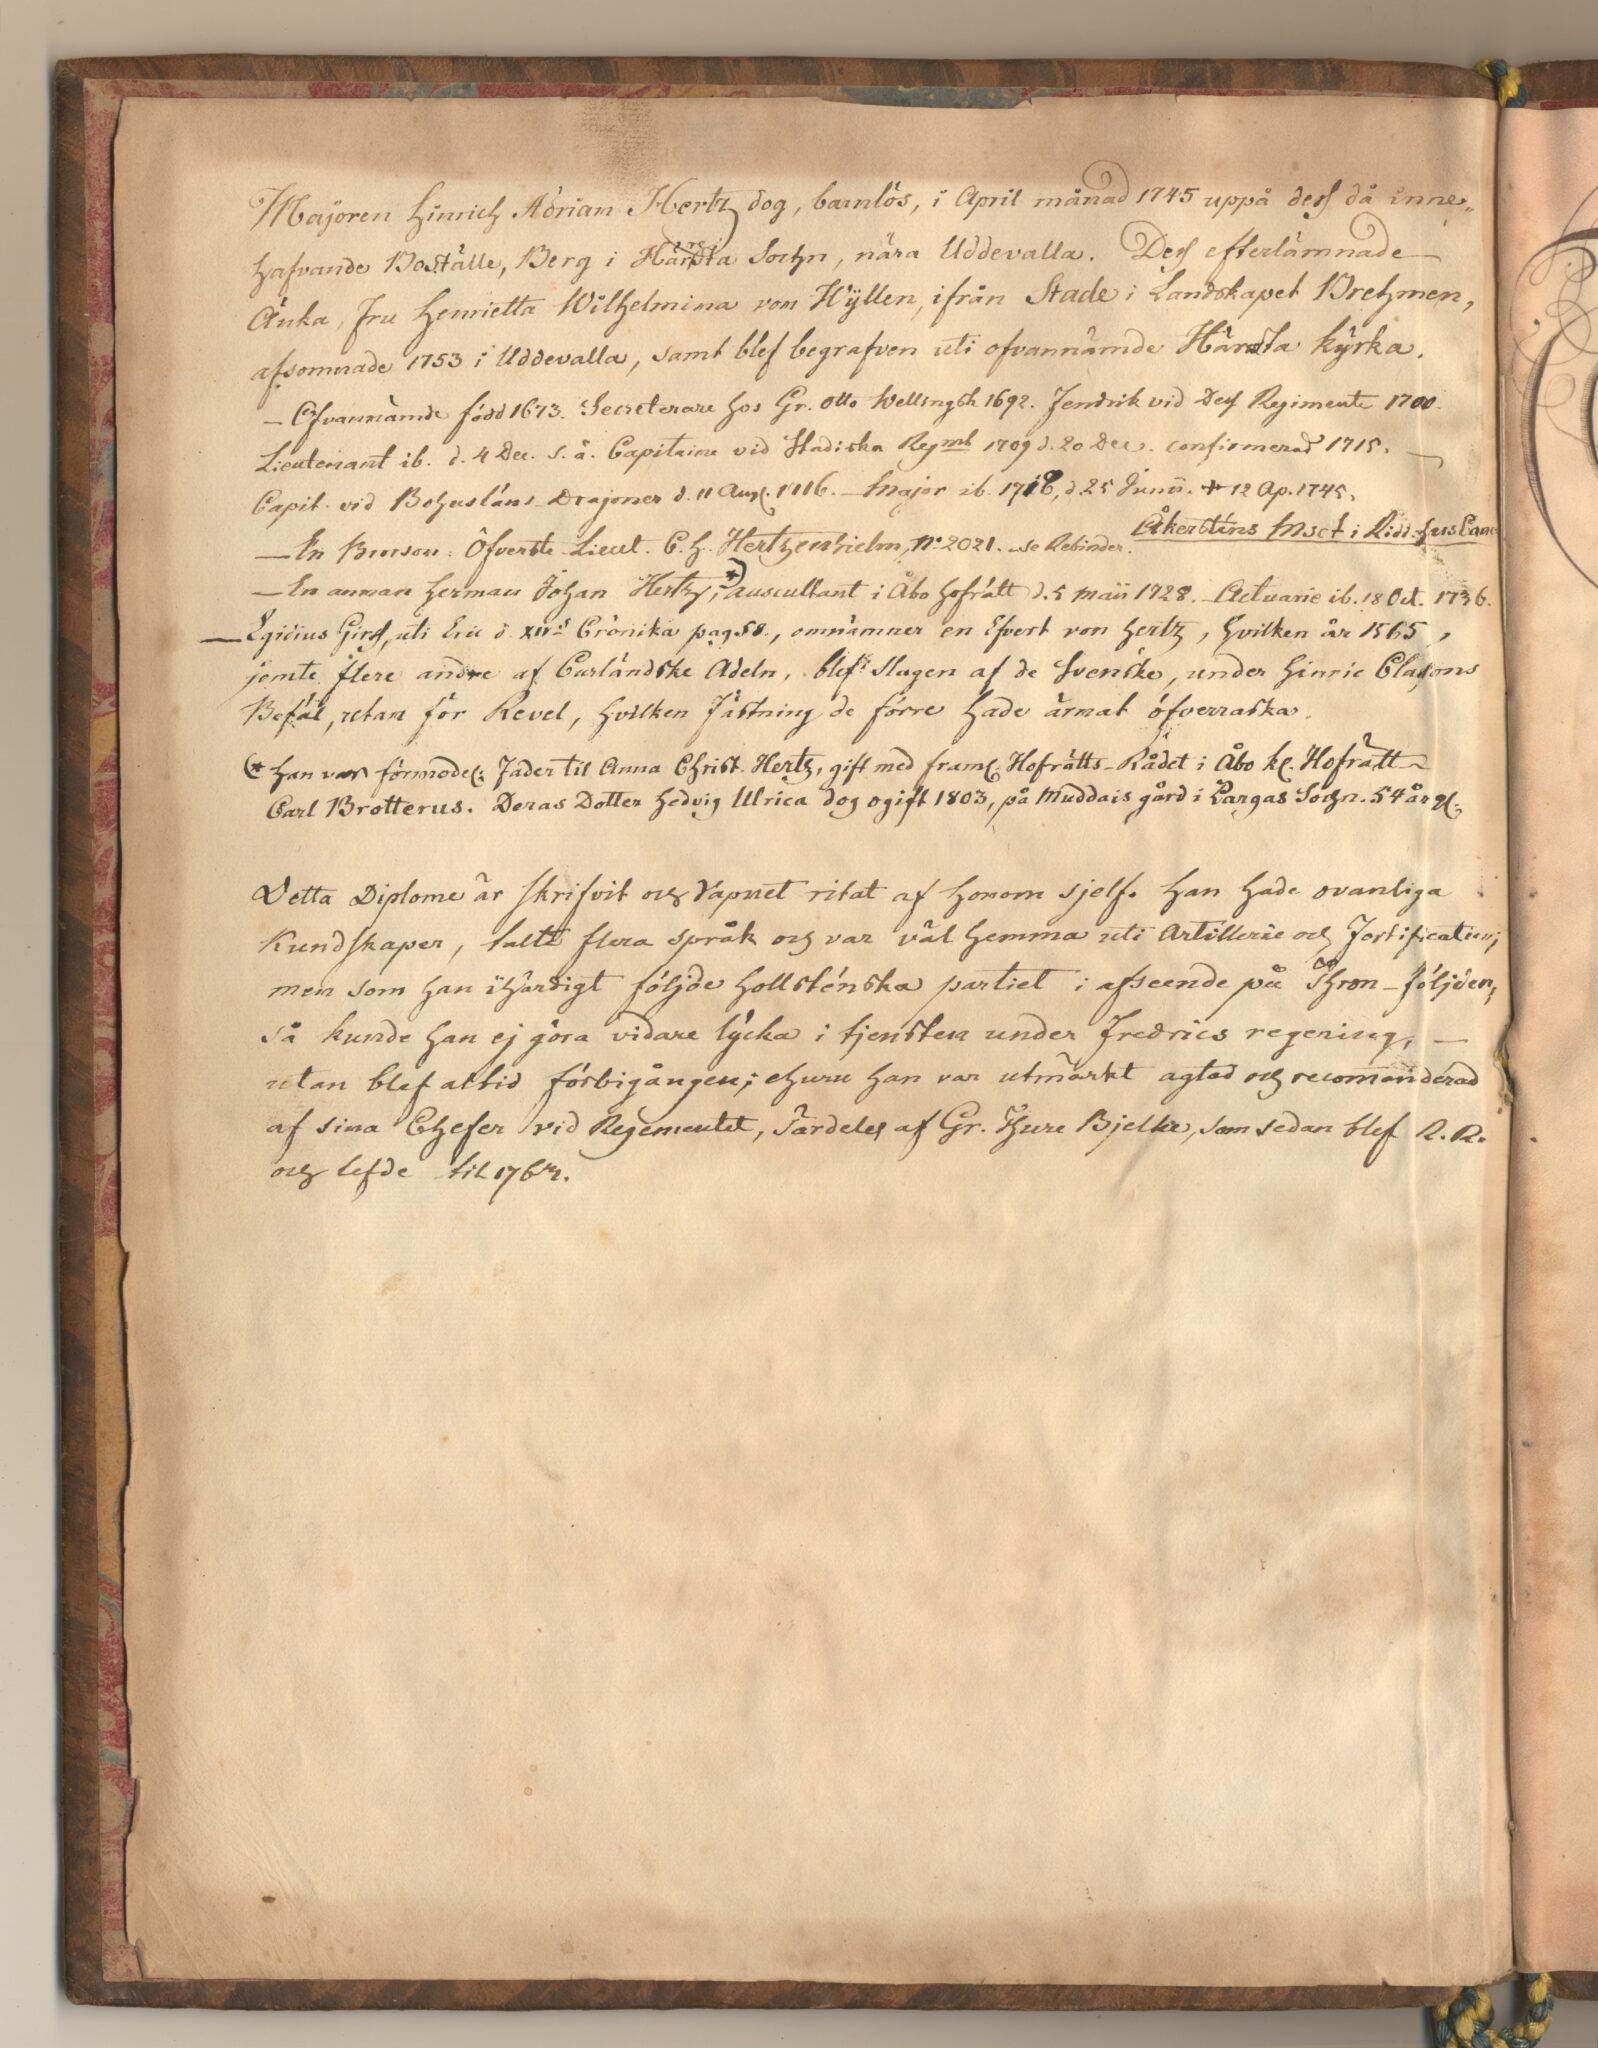 Majoren Hinrich Adrian Hertz dog, barnlös, i April månad 1745 uppå dess då inne-
hafvande Boställe, Berg i Härsta Sochn, nära Uddevalla. Dess efterlämnade
Änka, Fru Henrietta Wilhelmina von Hÿllen, ifrån Stade i Landskapet Brehmen,
afsomnade 1753 i Uddevalla, samt blef begrafven uti ofvannämde Härsta kÿrka.
— Ofvannämde född 1673. Secreterare hos Gr. Otto Wellingk 1692. Fendrik vid Dess Regimente 1700.
Lieutenant ib. d. 4 Dec. s. å. Capitaine vid Stadiska Regmt 1709 d. 20 Dec. confirmerad 1715. —
Capit. vid Bohusläns Dragoner d. 11 Aug. 1716. — Major ib. 1718, d. 25 Junii. + 12 Ap. 1745.
Åkersteins Msct i Ridd. hus Canc
— En Brorson: Öfverste Lieut. C. H. Hertzenhielm, No 2021. se Rebinder.
— En annan Herman Johan Hertz, *) auscultant i Åbo Hofrätt d. 5 Maii 1728. — Actuarie ib. 18 Oct. 1736.
— Egidius Girs, uti Eric d. XIV:s Crönika pag 58., omnämner en Efvert von Hertz, hvilken år 1565,
jemte flere andre af Curländske Adeln, blef slagen af de Svenske, under Hinric Classons
Befäl, utan för Revel, hvilken Fästning de förre hade ärnat öfverraska.
(* Han var förmodel: Fader til Anna Christ. Hertz, gift med framl. Hofrätts-Rådet i Åbo kl. Hofrätt
Carl Brotterus. Deras Dotter Hedvig Ulrica dog ogift 1803, på Muddais gård i Pargas Sochn. 54 år gl.
Detta Diplome är skrifvit och Vapnet ritat af honom sjelf. Han hade ovanliga
Kundskaper, talte flera språk och var väl hemma uti Artillerie och Fortification;
men som han ihärdigt följde hollstenska partiet i afseende på Thron-följden,
så kunde han ej göra vidare lÿcka i tjensten under Fredrics regering, —
utan blef altid förbigången; ehuru han var utmärkt agtad och recomenderad
af sina Chefer vid Regementet, särdeles af Gr. Thure Bjelke, som sedan blef R. R.
och lefde til